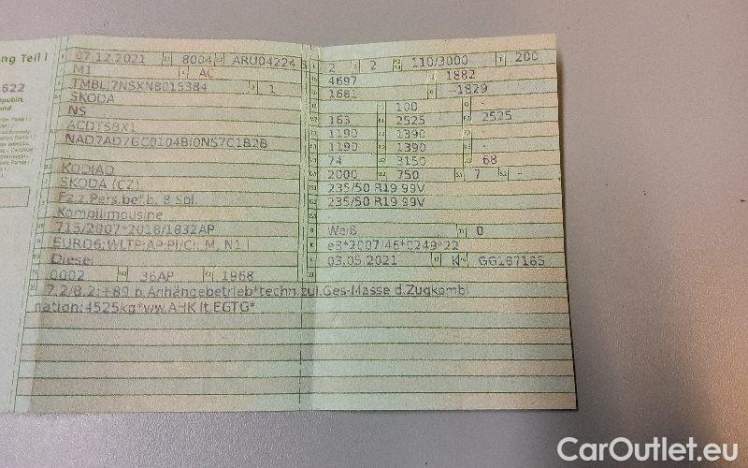 ng Teil I
622
07.12.2021 8004 ARU04224
M1 AC
1
SKODA
NS
ACDTSBX1
KODIAQ
SKODA (CZ)
Fz.z.Pers.bef.b. 8 Spl.
Kombilimousine
715/2007*2018/1832AP
EURO6;WLTP;AP;PI/CI; M, N1 I
Diesel
0002 36AP 1968
7.2/8.2:+80 b.Anhängebetrieb*techn.zul.Ges-Masse d.Zugkombi
nation:4525kg*ww.AHK lt.EGTG*
2 2 110/3000 200
4697 1882
1681 -1829
100 -
163 2525 2525
1190 1390 -
1190 1390 -
74 3150 68
2000 750 7 -
235/50 R19 99V
235/50 R19 99V
Weiß 0
e8*2007/46*0249*22
03.05.2021 K GG187185
CarOutlet.eu